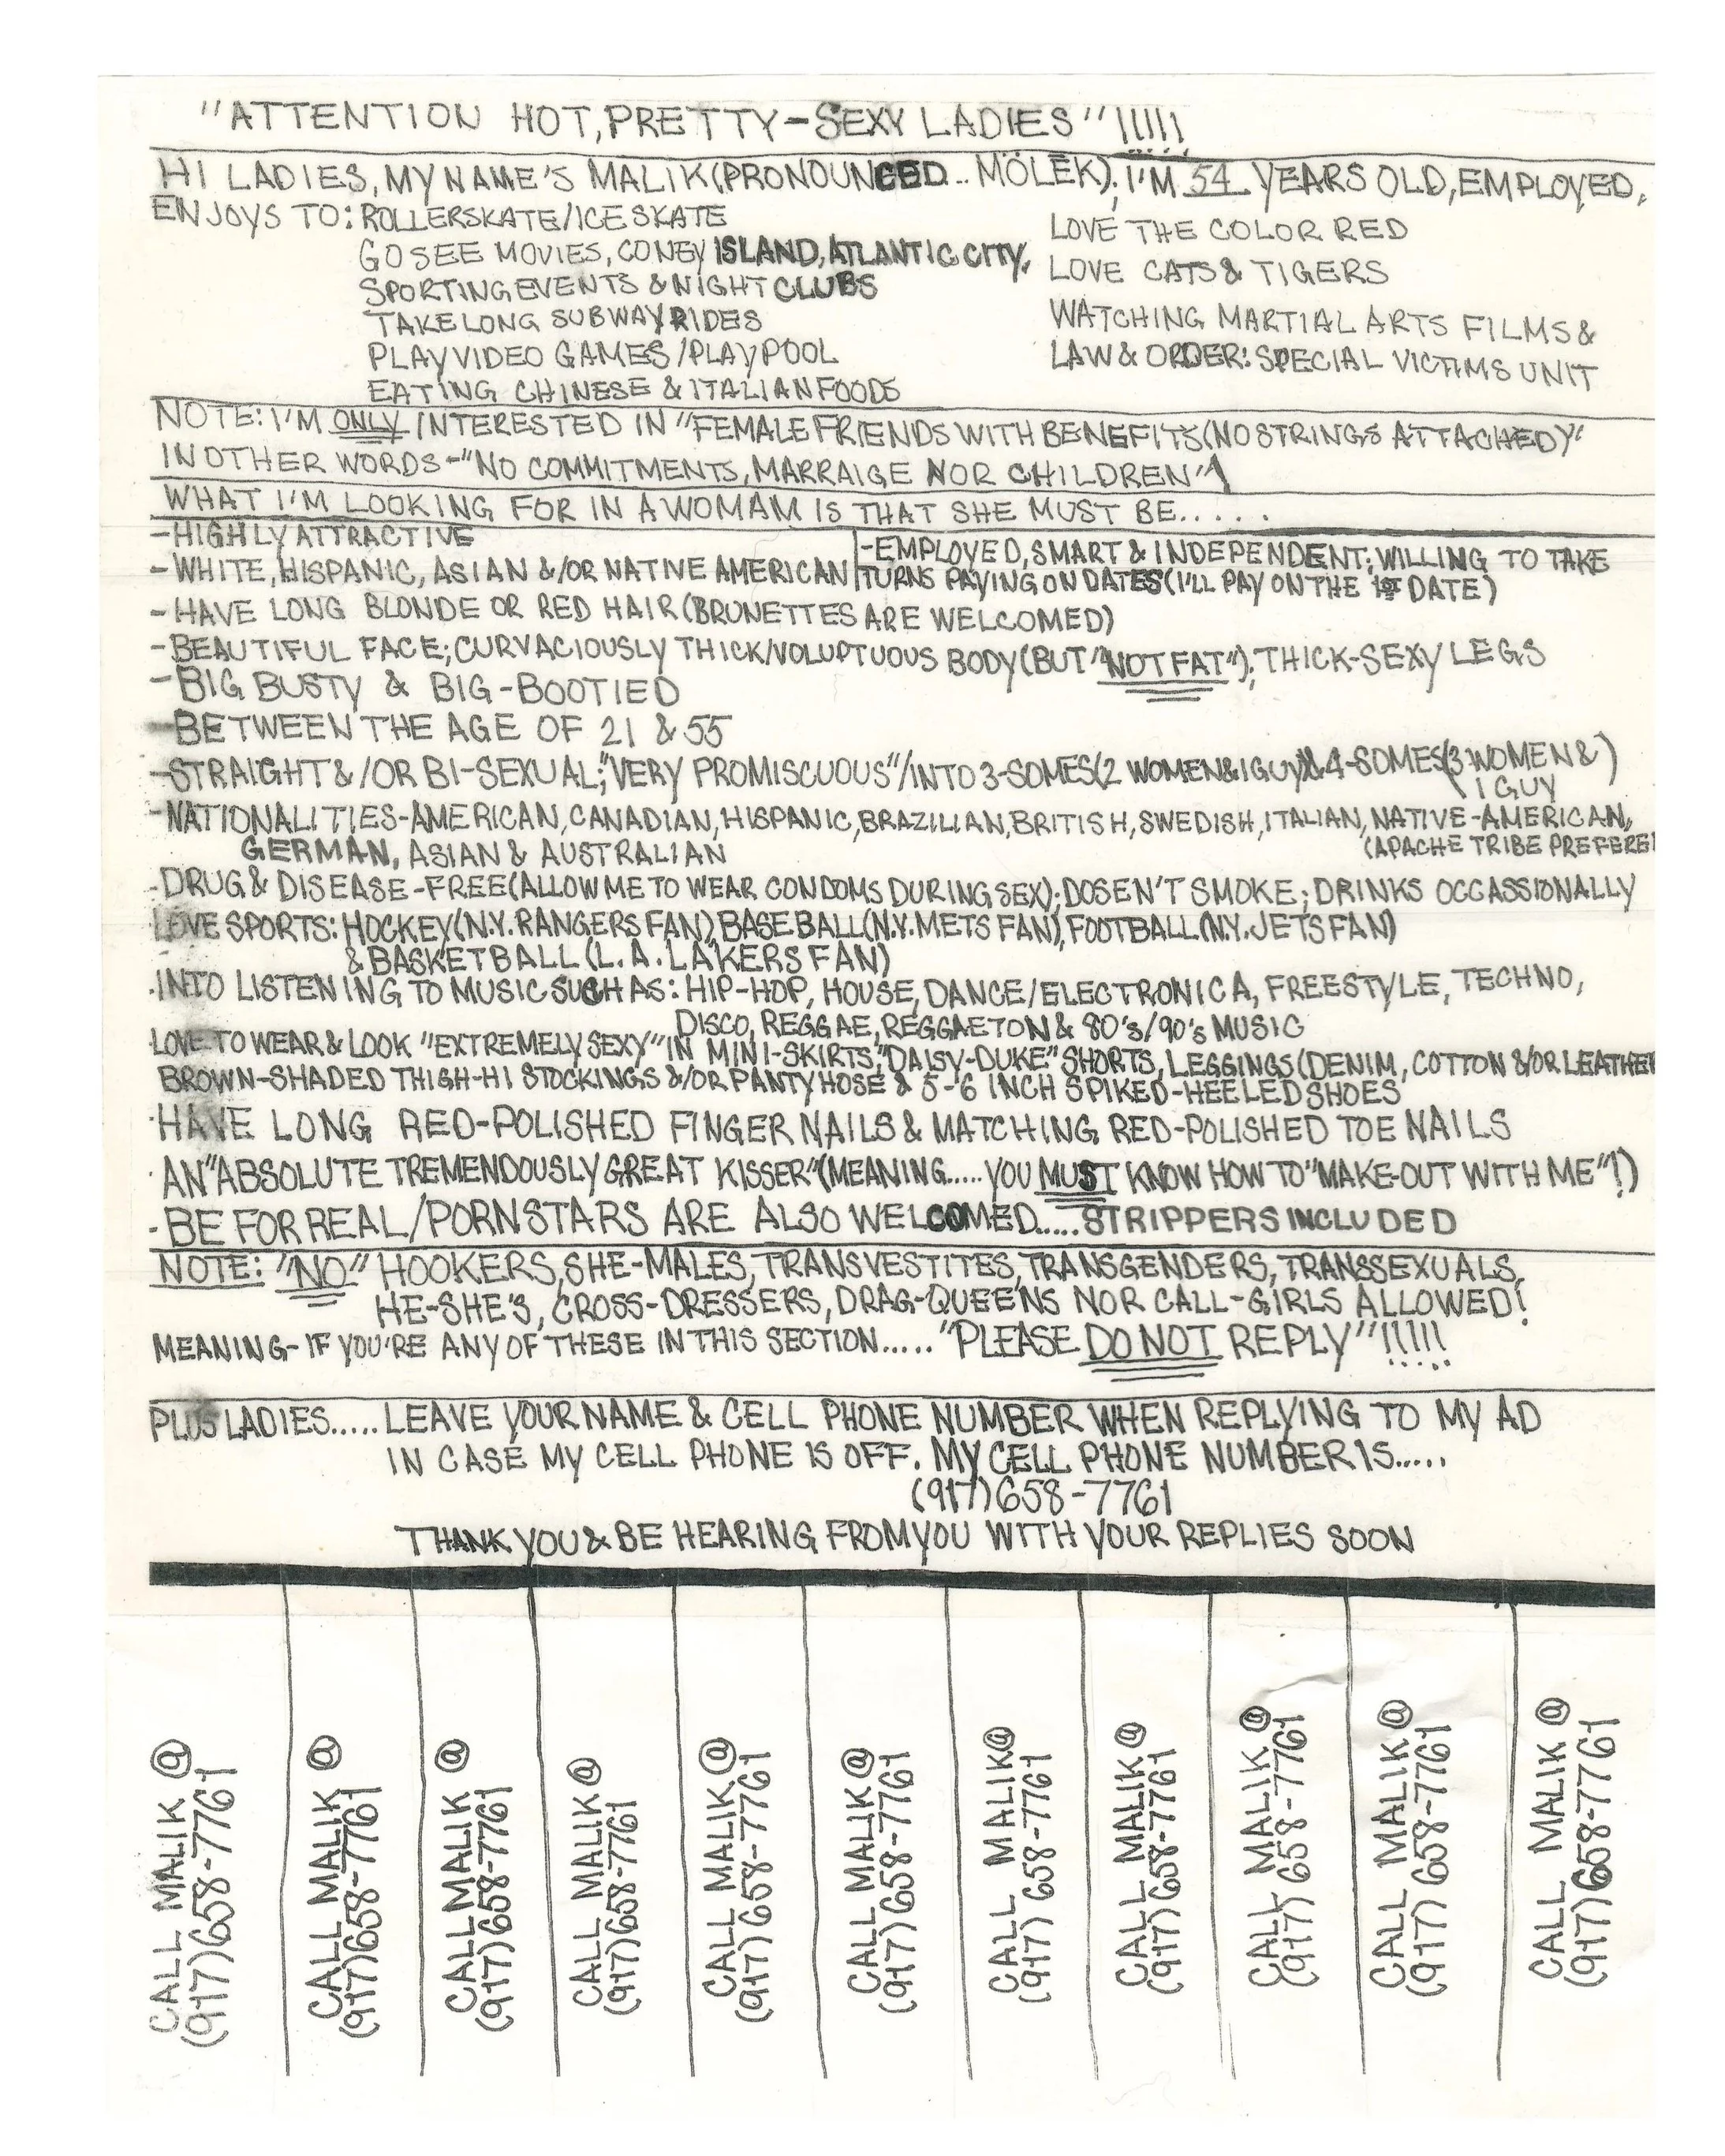 "ATTENTION HOT, PRETTY-SEXY LADIES"!!!!!
HI LADIES, MY NAME'S MALIK (PRONOUNCED... MÖLĒK). I'M 54 YEARS OLD, EMPLOYED,
ENJOYS TO: ROLLERSKATE/ICE SKATE
GO SEE MOVIES, CONEY ISLAND, ATLANTIC CITY,
SPORTING EVENTS & NIGHT CLUBS
TAKE LONG SUBWAY RIDES
PLAY VIDEO GAMES/PLAY POOL
EATING CHINESE & ITALIAN FOODS
LOVE THE COLOR RED
LOVE CATS & TIGERS
WATCHING MARTIAL ARTS FILMS &
LAW & ORDER: SPECIAL VICTIMS UNIT
NOTE: I'M ONLY INTERESTED IN "FEMALE FRIENDS WITH BENEFITS (NO STRINGS ATTACHED)"
IN OTHER WORDS-"NO COMMITMENTS, MARRAIGE NOR CHILDREN"!
WHAT I'M LOOKING FOR IN A WOMAM IS THAT SHE MUST BE.....
-HIGHLY ATTRACTIVE
-WHITE, HISPANIC, ASIAN &/OR NATIVE AMERICAN
-EMPLOYED, SMART & INDEPENDENT; WILLING TO TAKE
TURNS PAYING ON DATES (I'LL PAY ON THE 1ST DATE)
-HAVE LONG BLONDE OR RED HAIR (BRUNETTES ARE WELCOMED)
-BEAUTIFUL FACE; CURVACIOUSLY THICK/VOLUPTUOUS BODY (BUT "NOT FAT"); THICK-SEXY LEGS
-BIG BUSTY & BIG-BOOTIED
-BETWEEN THE AGE OF 21 & 55
-STRAIGHT &/OR BI-SEXUAL; "VERY PROMISCUOUS"/INTO 3-SOMES (2 WOMEN & 1 GUY) & 4-SOMES (3 WOMEN &
1 GUY)
-NATIONALITIES-AMERICAN, CANADIAN, HISPANIC, BRAZILIAN, BRITISH, SWEDISH, ITALIAN, NATIVE-AMERICAN,
(APACHE TRIBE PREFERE
GERMAN, ASIAN & AUSTRALIAN
-DRUG & DISEASE-FREE (ALLOW ME TO WEAR CONDOMS DURING SEX); DOSEN'T SMOKE; DRINKS OCCASSIONALLY
LOVE SPORTS: HOCKEY (N.Y. RANGERS FAN), BASEBALL (N.Y. METS FAN), FOOTBALL (N.Y. JETS FAN)
& BASKETBALL (L.A. LAKERS FAN)
-INTO LISTENING TO MUSIC SUCH AS: HIP-HOP, HOUSE, DANCE/ELECTRONICA, FREESTYLE, TECHNO,
DISCO, REGGAE, REGGAETON & 80's/90's MUSIC
LOVE TO WEAR & LOOK "EXTREMELY SEXY" IN MINI-SKIRTS, "DAISY-DUKE" SHORTS, LEGGINGS (DENIM, COTTON &/OR LEATHER
BROWN-SHADED THIGH-HI STOCKINGS &/OR PANTYHOSE & 5-6 INCH SPIKED-HEELED SHOES
-HAVE LONG RED-POLISHED FINGER NAILS & MATCHING RED-POLISHED TOE NAILS
-AN "ABSOLUTE TREMENDOUSLY GREAT KISSER" (MEANING.....YOU MUST KNOW HOW TO "MAKE-OUT WITH ME"!)
-BE FOR REAL/PORNSTARS ARE ALSO WELCOMED....STRIPPERS INCLUDED
NOTE: "NO" HOOKERS, SHE-MALES, TRANSVESTITES, TRANSGENDERS, TRANSSEXUALS,
HE-SHE'S, CROSS-DRESSERS, DRAG-QUEENS NOR CALL-GIRLS ALLOWED!
MEANING-IF YOU'RE ANY OF THESE IN THIS SECTION....."PLEASE DO NOT REPLY"!!!!!
PLUS LADIES.....LEAVE YOUR NAME & CELL PHONE NUMBER WHEN REPLYING TO MY AD
IN CASE MY CELL PHONE IS OFF. MY CELL PHONE NUMBER IS.....
(917)658-7761
THANK YOU & BE HEARING FROM YOU WITH YOUR REPLIES SOON
CALL MALIK @
(917)658-7761
CALL MALIK @
(917)658-7761
CALL MALIK @
(917)658-7761
CALL MALIK @
(917)658-7761
CALL MALIK @
(917)658-7761
CALL MALIK @
(917)658-7761
CALL MALIK @
(917)658-7761
CALL MALIK @
(917)658-7761
CALL MALIK @
(917)658-7761
CALL MALIK @
(917)658-7761
CALL MALIK @
(917)658-7761